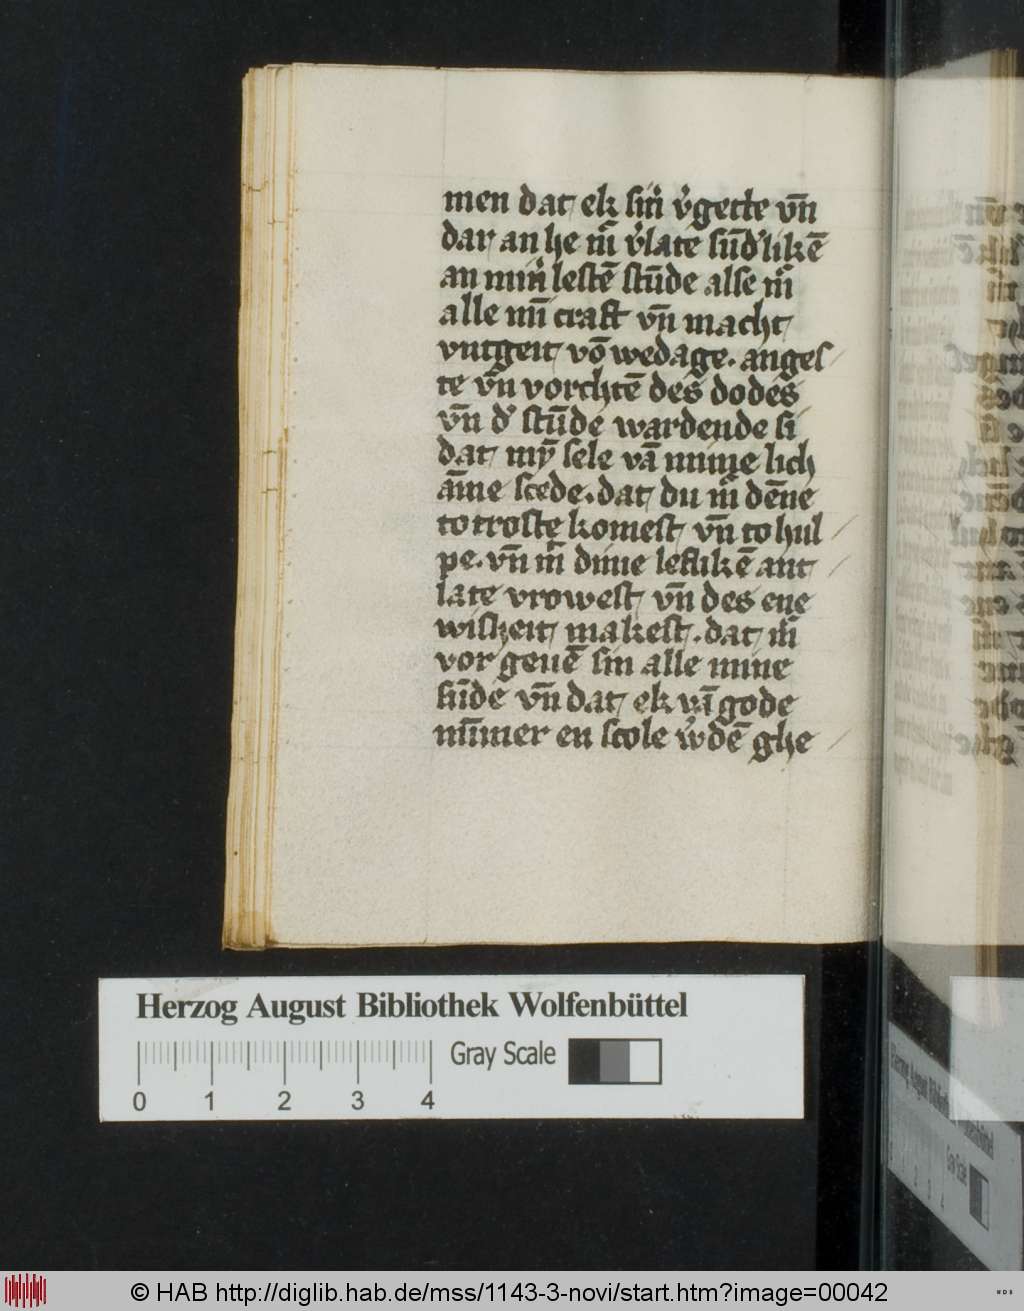 men dat ek sin̉ v̉gete vn̄
dar an he m̄ v̉late sūd̉likē
an min̉ lestē stūde alse m̄
alle mī craft vn̄ macht
vntgeit vō wedage. anges
te vn̄ vorchtē des dodes
vn̄ d̉ stūde wardende si
dat mȳ sele vā mime lich
āme scede. dat du m̄ dēne
to troste komest vn̄ to hul
pe. vn̄ m̄ dime leflikē ant
late vrowest vn̄ des ene
wisheit makest. dat m̄
vor geuē sin alle mine
sūde vn̄ dat ek vā gode
nūmer en scole w̉dē ghe
Herzog August Bibliothek Wolfenbüttel
Gray Scale
0 1 2 3 4
© HAB http://diglib.hab.de/mss/1143-3-novi/start.htm?image=00042